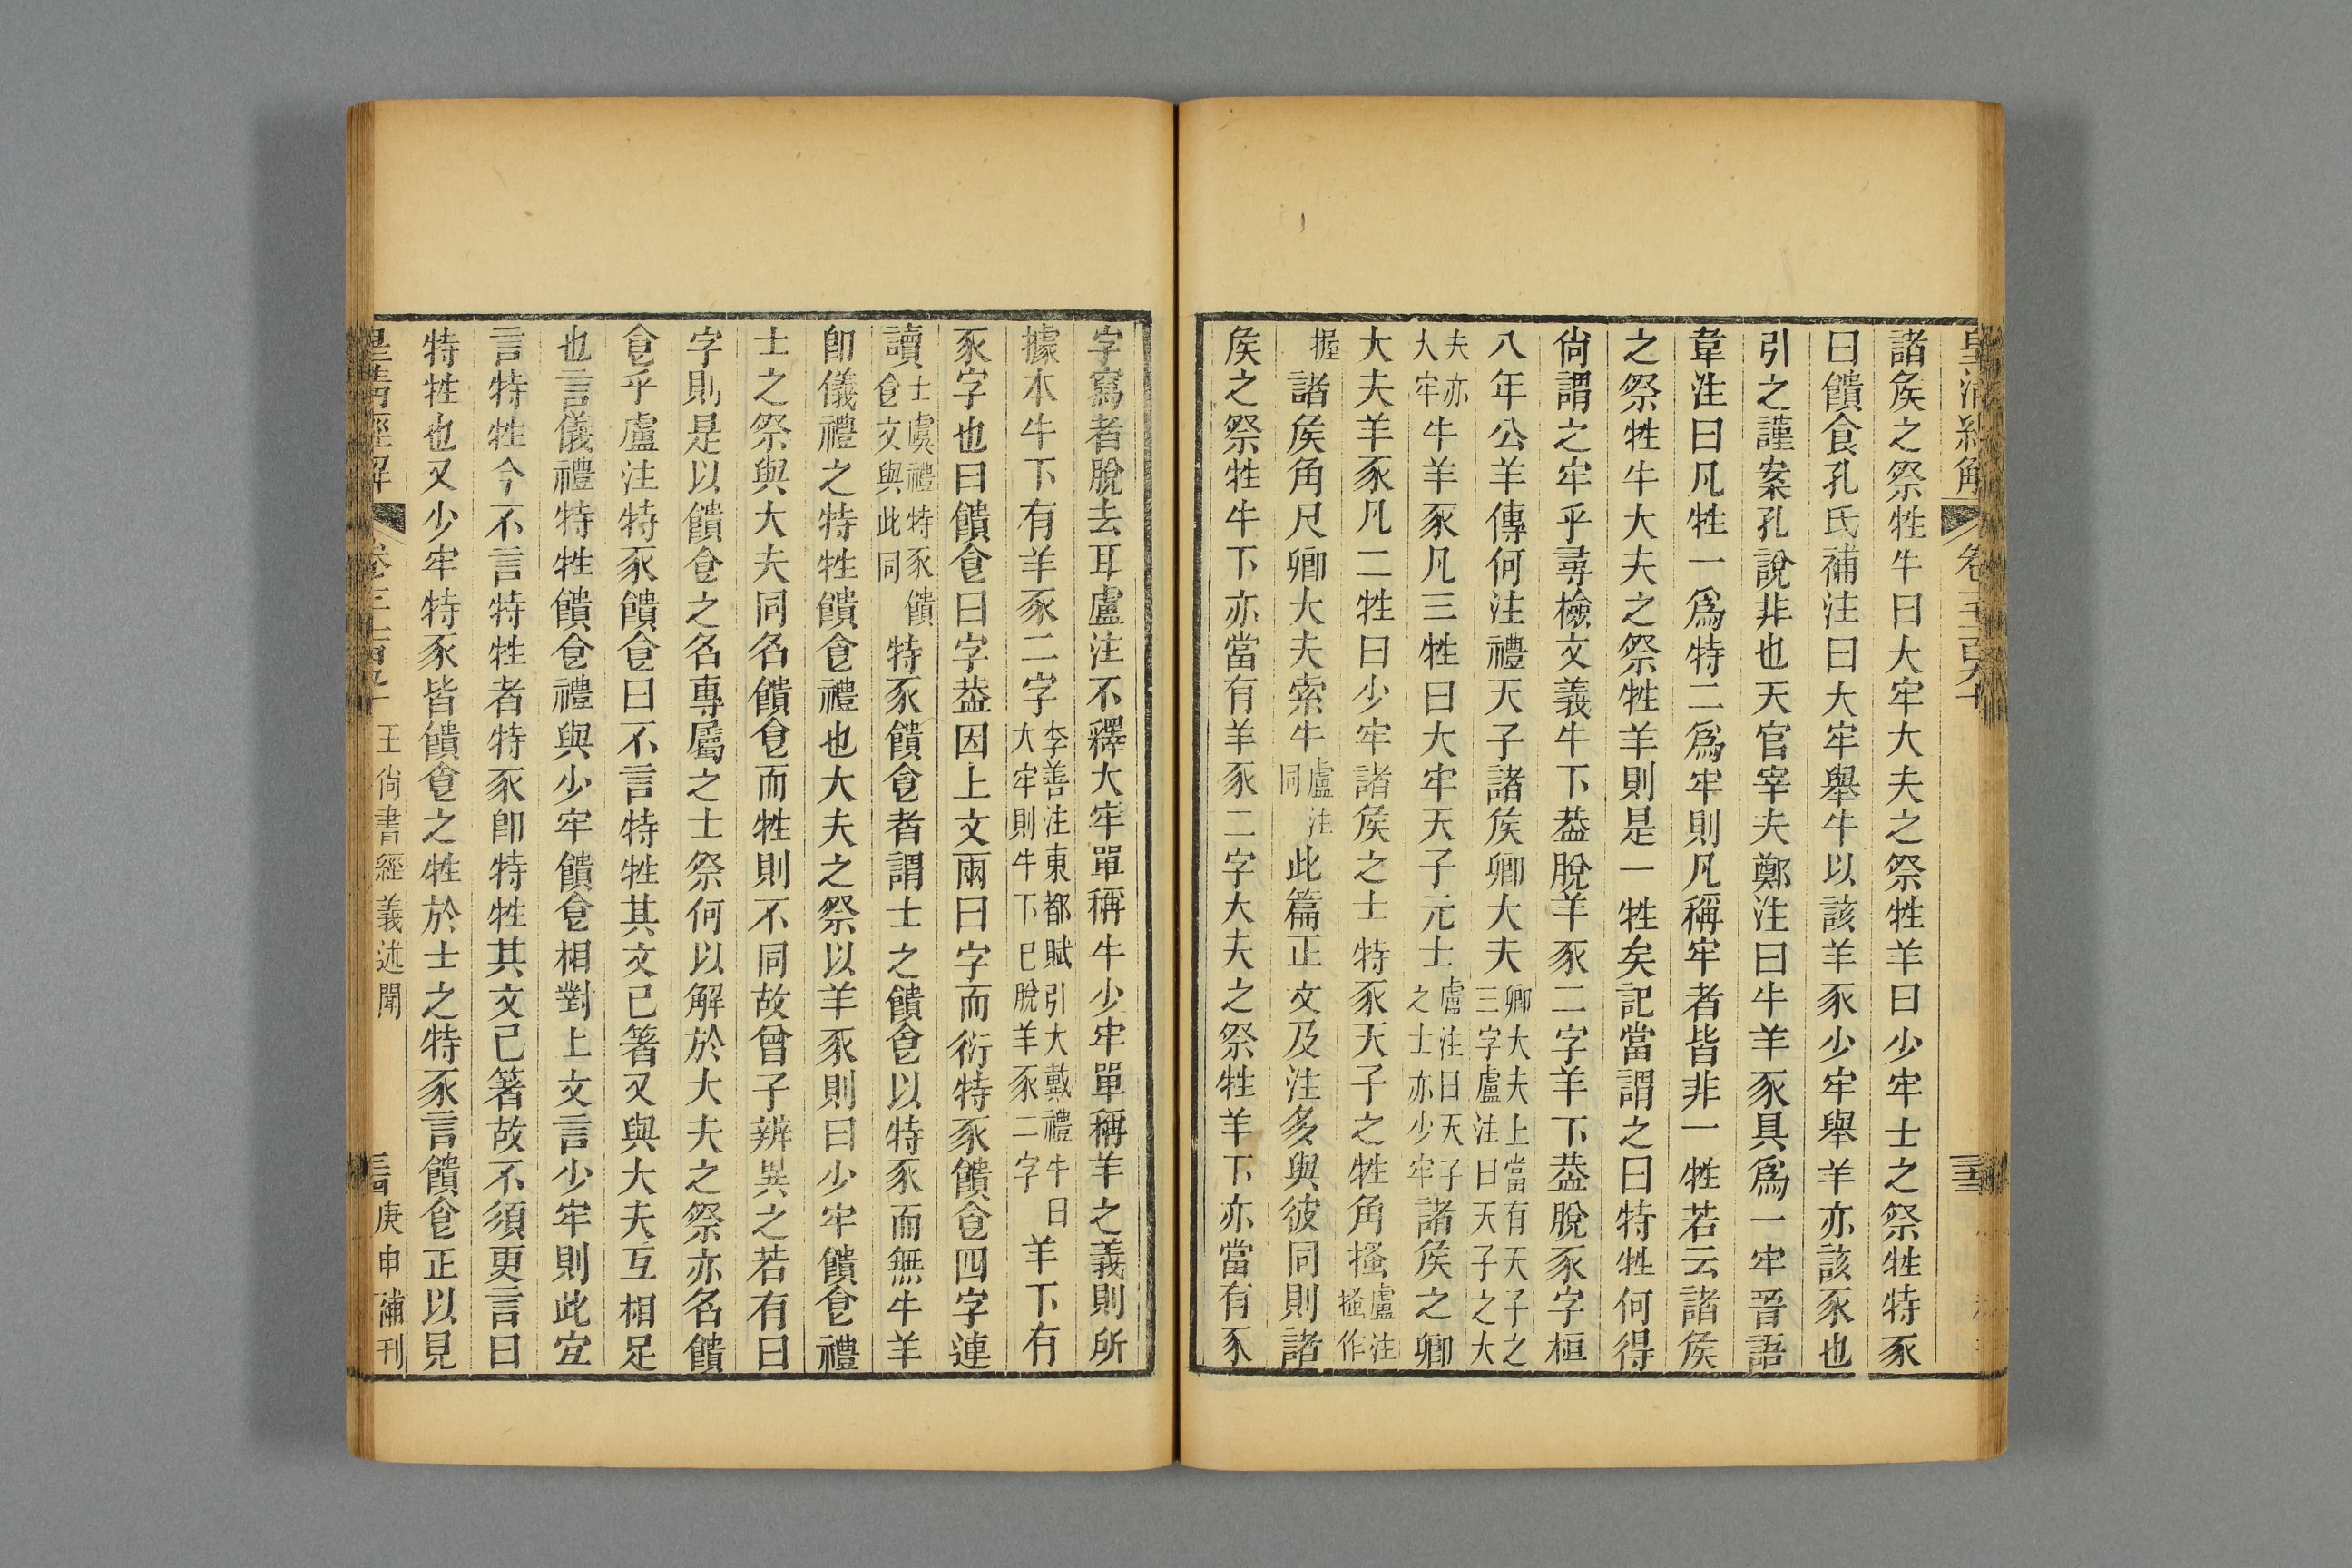 皇清經解 卷千百九十
諸矦之祭牲牛曰大牢大夫之祭牲羊曰少牢士之祭牲特豕
曰饋食孔氏補注曰大牢舉牛以該羊豕少牢舉羊亦該豕也
引之謹案孔說非也天官宰夫鄭注曰牛羊豕具爲一牢晉語
韋注曰凡牲一爲特二爲牢則凡稱牢者皆非一牲若云諸矦
之祭牲牛大夫之祭牲羊則是一牲矣記當謂之曰特牲何得
尙謂之牢乎尋檢文義牛下葢脫羊豕二字羊下葢脫豕字桓
八年公羊傳何注禮天子諸矦卿大夫卿大夫上當有天子之三字盧注曰天子之大
夫亦大牢牛羊豕凡三牲曰大牢天子元士盧注曰天子之士亦少牢諸矦之卿
大夫羊豕凡二牲曰少牢諸矦之士特豕天子之牲角搔盧注搔作
握諸矦角尺卿大夫索牛盧注同此篇正文及注多與彼同則諸
矦之祭牲牛下亦當有羊豕二字大夫之祭牲羊下亦當有豕
字寫者脫去耳盧注不釋大牢單稱牛少牢單稱羊之義則所
據本牛下有羊豕二字李善注東都賦引大戴禮牛曰大牢則牛下已脫羊豕二字羊下有
豕字也曰饋食曰字葢因上文兩曰字而衍特豕饋食四字連
讀士虞禮特豕饋食文與此同特豕饋食者謂士之饋食以特豕而無牛羊
卽儀禮之特牲饋食禮也大夫之祭以羊豕則曰少牢饋食禮
士之祭與大夫同名饋食而牲則不同故曾子辨異之若有曰
字則是以饋食之名專屬之士祭何以解於大夫之祭亦名饋
食乎盧注特豕饋食曰不言特牲其文已箸又與大夫互相足
也言儀禮特牲饋食禮與少牢饋食相對上文言少牢則此宜
言特牲今不言特牲者特豕卽特牲其文已箸故不須更言曰
特牲也又少牢特豕皆饋食之牲於士之特豕言饋食正以見
皇清經解 卷千百九十 王尙書經義述聞 庚申補刊